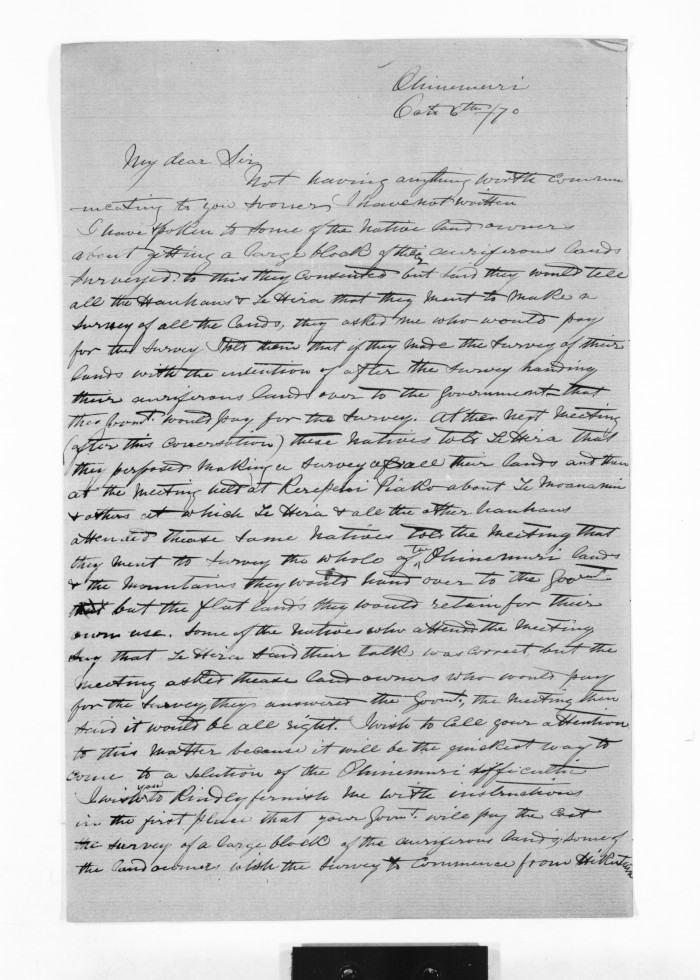 Ohinemuri
Oct 6th /70
My dear Sir
Not having anything worth commu
nicating to you sooner, I have not written
I have spoken to some of the Native land owners
about getting a large block of their auriferous lands
surveyed, to this they consented but said they would tell
all the Hauhaus & Te Hira that they meant to make a
survey of all the lands, they asked me who would pay
for the survey I told them that if they made the survey of their
lands with the intention of after the survey handing
their auriferous lands over to the Government that
the Govmt. would pay for the survey. At the next meeting
(after this conversation) these Natives told Te Hira that
they purposed making a survey of all their lands and then
at the meeting held at Kerepehi Piako about Te Moananui
& others at which Te Hira & all the other hauhaus
attended these same natives told the meeting that
they meant to survey the whole of the Ohinemuri lands
& the mountains they would hand over to the Govmt.
but the flat lands they would retain for their
own use. Some of the Natives who attended the meeting
say that Te Hira said their talk was correct, but the
meeting asked these land owners who would pay
for the survey, they answered the Govmt, the meeting then
said it would be all right. I wish to call your attention
to this matter because it will be the quickest way to
come to a solution of the Ohinemuri difficultie
I wish you to kindly furnish me with instructions
in the first place that your Govmt. will pay the cost
the survey of a large block of the auriferous lands, some of
the land owners wish the survey to commence from Hikutaia